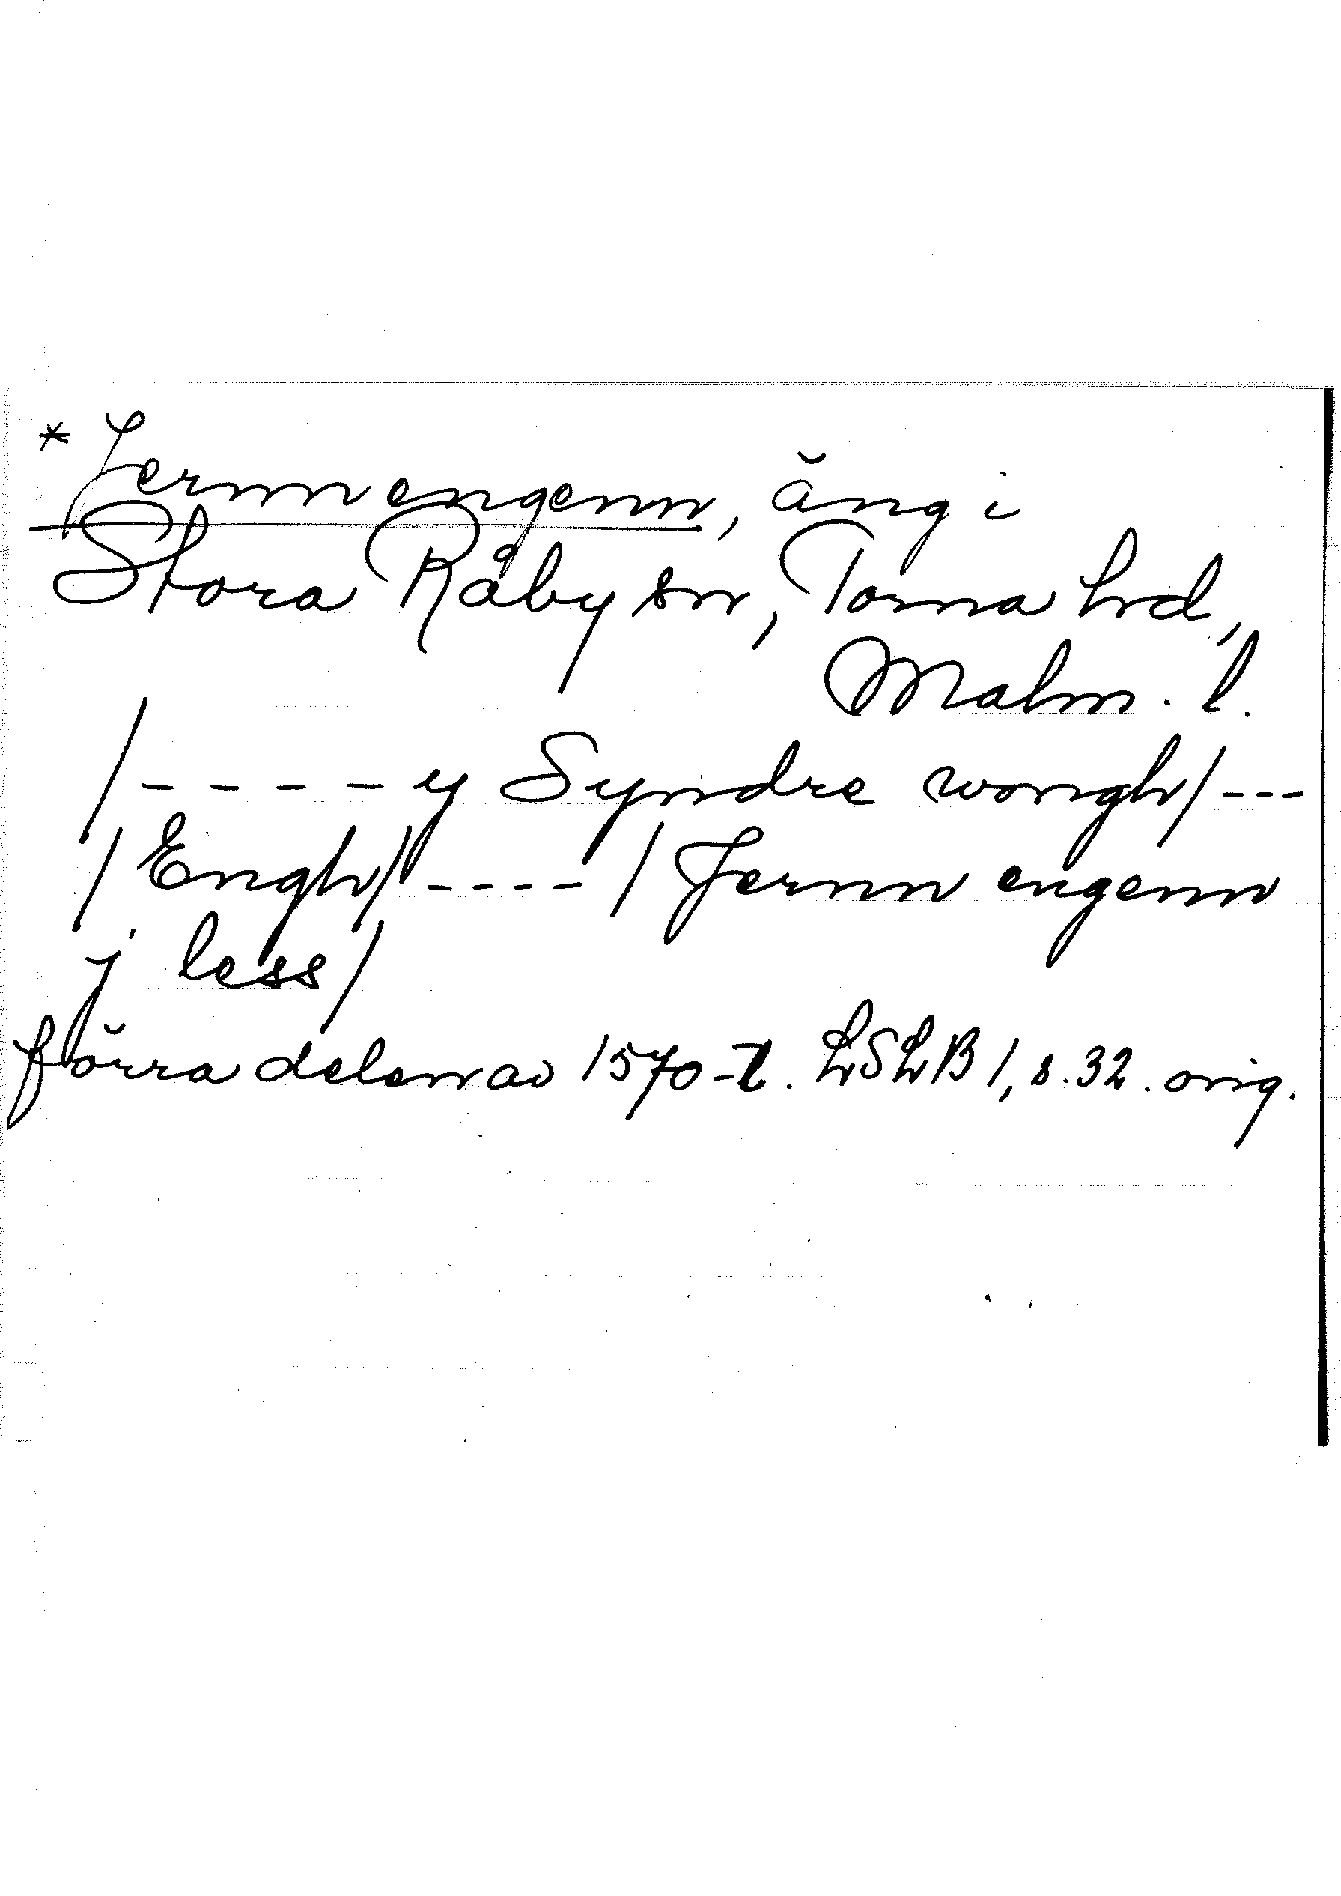 * Jernn engenn, äng i
Stora Råby sn, Torna hd,
Malm. l.
/ - - - - - y Syndre wongh / - - -
/ Engh / - - - - / Jernn engenn
j less /
förra delen av 1570-t. LSLB 1, s. 32. orig.